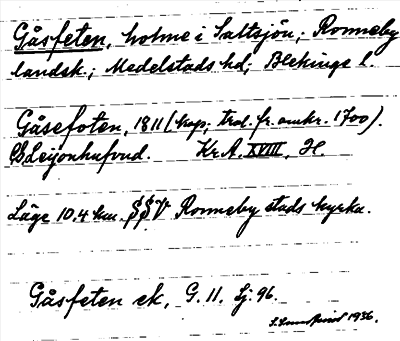 Gåsfeten, holme i Saltsjön; Ronneby
landsk.; Medelstads hd; Blekinge l.
Gåsefoten, 1811 (kop; trol. fr. omkr. 1700).
Leijonhufvud. Kr.A. XVIII, H.
Läge 10.4 km. S§V Ronneby stads kyrka.
Gåsfeten ek, G. 11. Lj. 96.
1936.